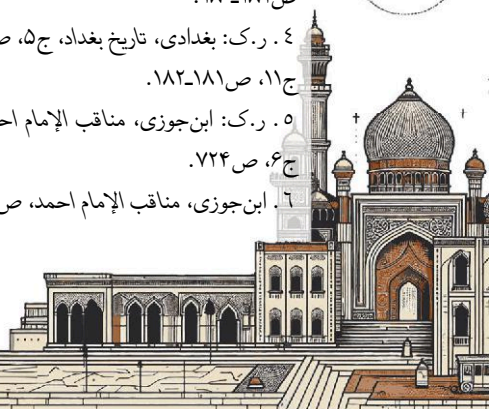 ٤ . ر.ک: بغدادی، تاریخ بغداد، ج۵،
ج۱۱، ص۱۸۱ـ۱۸۲.
٥ . ر.ک: ابن‌جوزی، مناقب الإمام
ج۶، ص۷۲۴.
٦ . ابن‌جوزی، مناقب الإمام احمد،